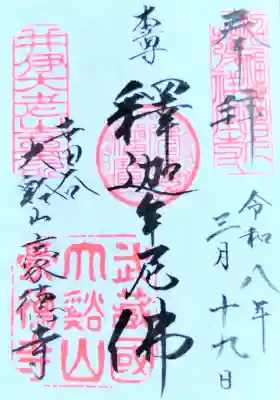 奉拝
令和八年
三月十九日
本尊
釋迦牟尼佛
世田谷
大谿山豪德寺
武藏國
大谿山
豪德寺